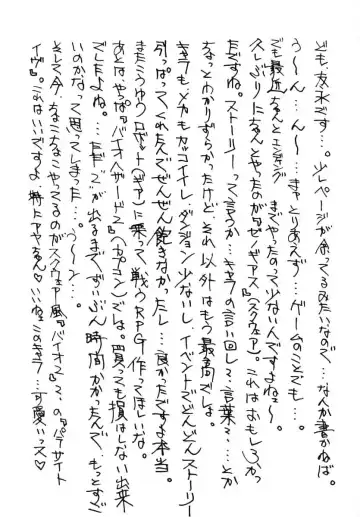 ども、友永です…。少しページが余ってるみたいなので…なんか書かねば。
う〜ん…ん〜…まァとりあえず…ゲームのことでも…。
でも最近ちゃんとエンディングまでやったのって少ないんですよねェ〜。
久しぶりにちゃんとやったのが『ゼノギアス』(スクウェア)。これはおもしろかっ
たですねェ。ストーリーって言うか…キャラの言い回しってゆーか言葉…とか
ちょっとわかりずらかったけど、それ以外はもう最高でしょ。
キャラもメカもカッコイイし、ダンジョン少ないし、イベントでどんどんストーリー
引っぱってくれたんでぜんぜん飽きなかったし…良かったですよ本当。
またこうゆうロボット(ギア)に乗って戦うRPG作ってほしいな。
あとは、やっぱ『バイオハザード2』(カプコン)では。買っても損はしない出来
でしたよね。…ただ『2』が出るまでずいぶん時間かかったんで、もっとすご
いのかなって思ってしまった…。う〜ん…。
そして今、ちょこちょこやってるのがスクウェア風『バイオ2』…の『パラサイト
イヴ』。これはいいですよ 特にアヤちゃん♡いいねェこのキャラ…可愛いっス♡